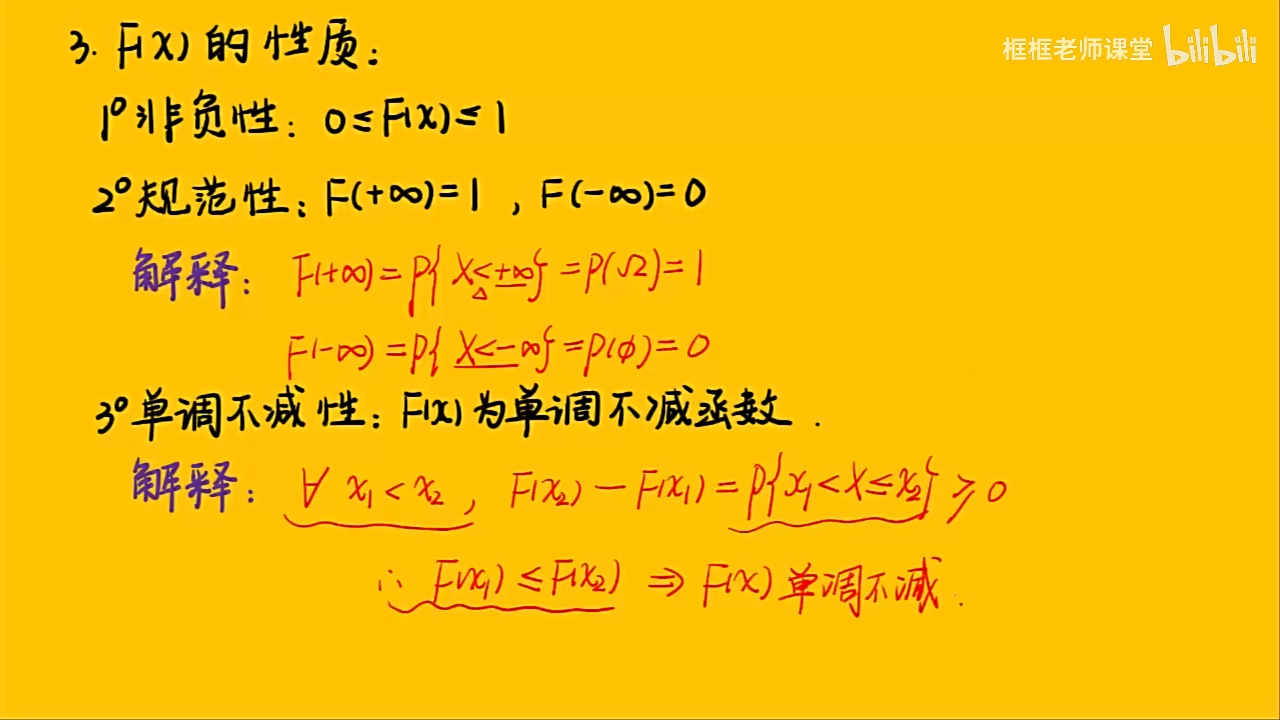 3. F(x)的性质:
框框老师课堂 bilibili
1° 非负性: 0≤F(x)≤1
2° 规范性: F(+∞)=1 , F(-∞)=0
解释: F(+∞)=P{X<+∞}=P(Ω)=1
F(-∞)=P{X<-∞}=P(φ)=0
3° 单调不减性: F(x)为单调不减函数.
解释: ∀ x₁<x₂, F(x₂)-F(x₁)=P{x₁<X≤x₂}≥0
∴ F(x₁)≤F(x₂) ⇒ F(x)单调不减.